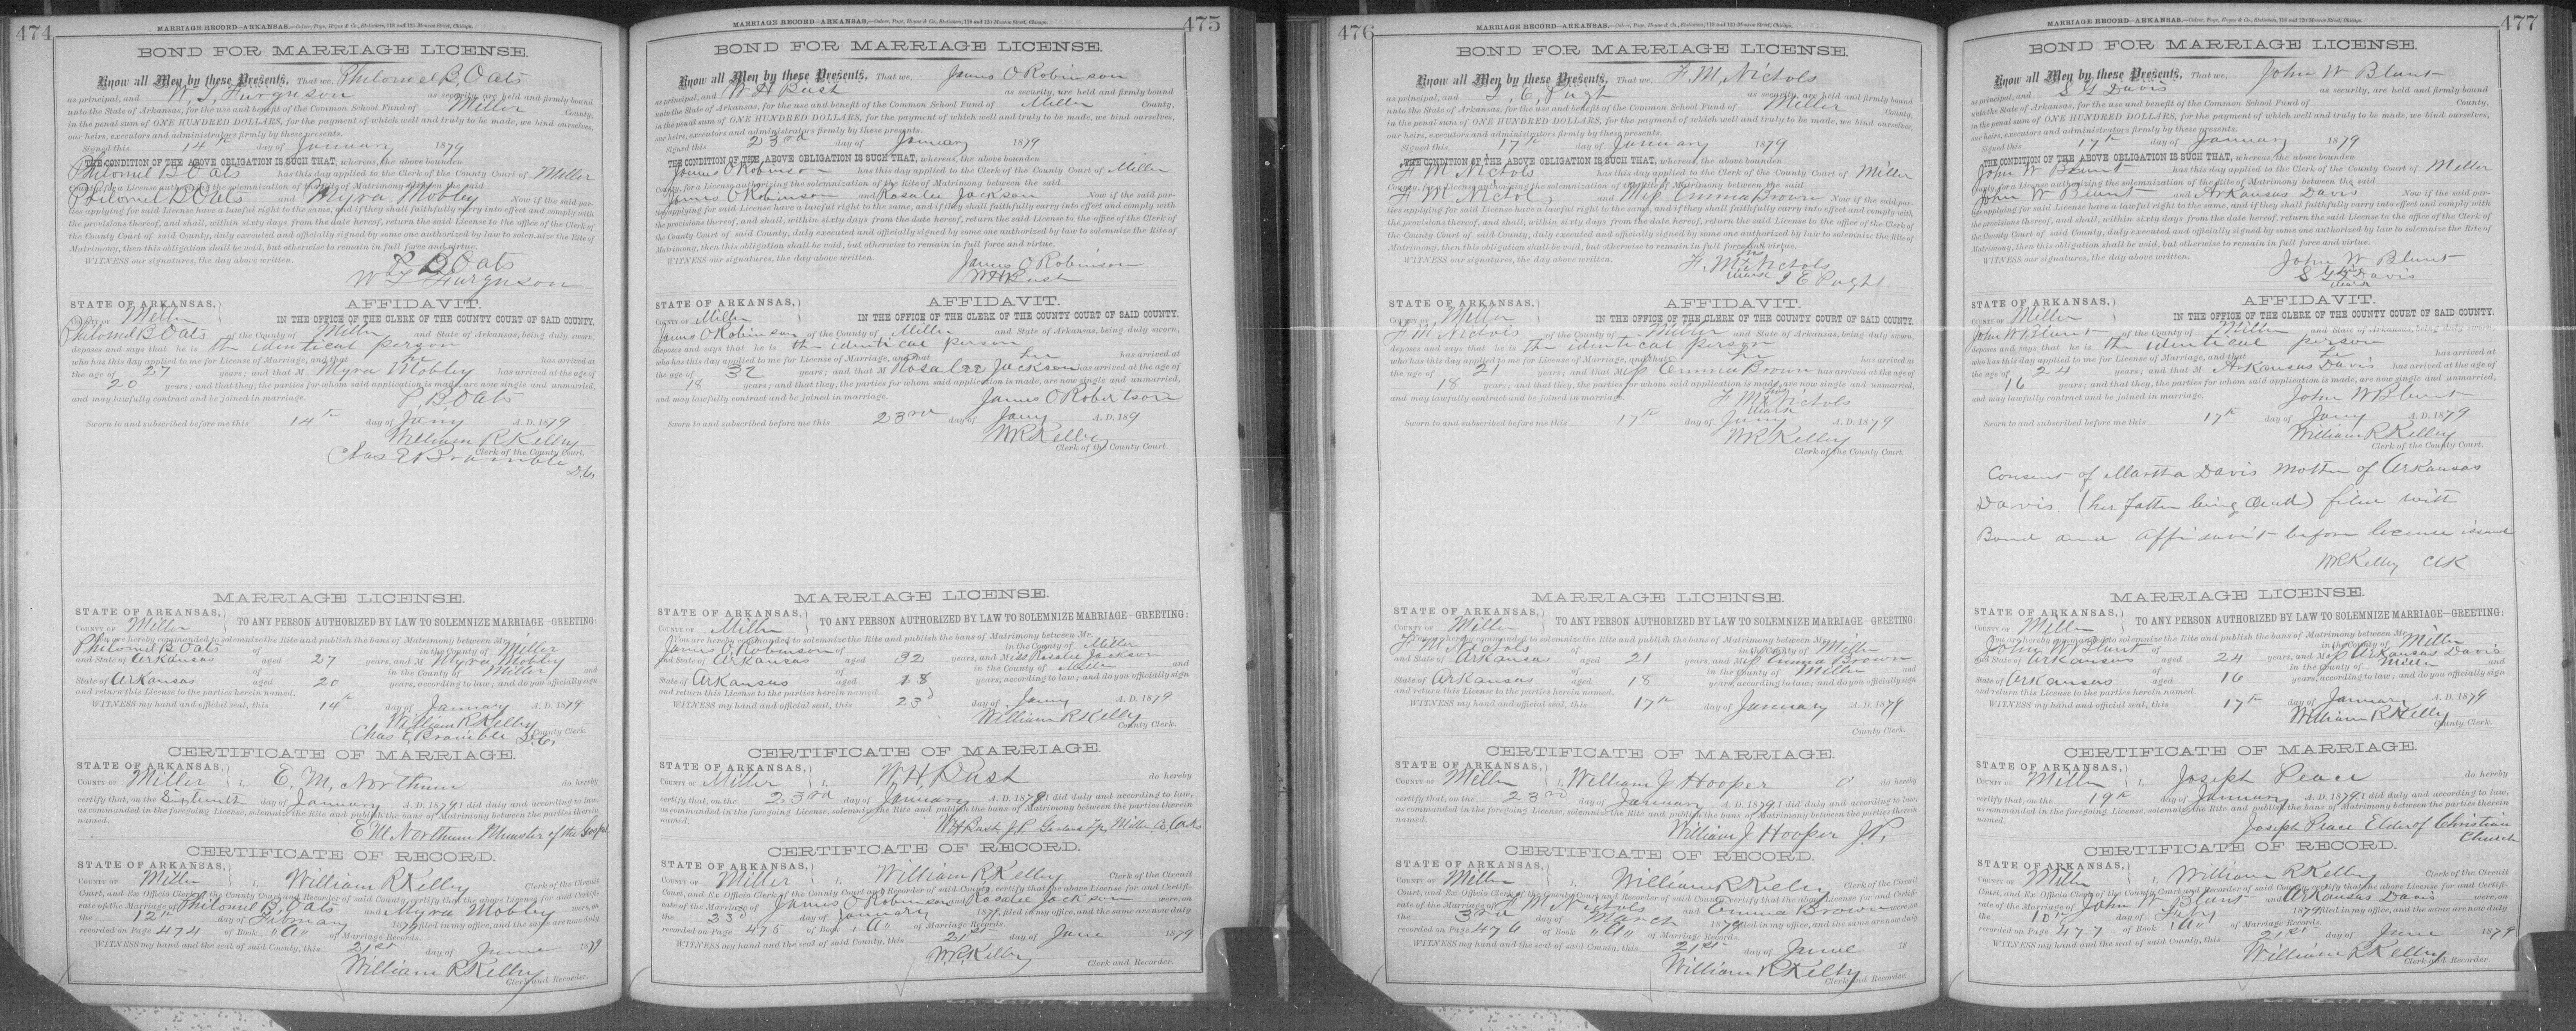 474
MARRIAGE RECORD—ARKANSAS.—Culver, Page, Hoyne & Co., Stationers, 118 and 120 Monroe Street, Chicago.
BOND FOR MARRIAGE LICENSE.
Know all Men by these Presents, That we, Philomel B, Oats
as principal, and W. L, Furguson as security, are held and firmly bound
unto the State of Arkansas, for the use and benefit of the Common School Fund of Miller County,
in the penal sum of ONE HUNDRED DOLLARS, for the payment of which well and truly to be made, we bind ourselves,
our heirs, executors and administrators firmly by these presents.
Signed this 14th day of January 1879
THE CONDITION OF THE ABOVE OBLIGATION IS SUCH THAT, whereas, the above bounden
Philomel B Oats has this day applied to the Clerk of the County Court of Miller
County, for a License authorizing the solemnization of the Rite of Matrimony between the said
Philomel B Oats and Myra Mobley Now if the said par-
ties applying for said License have a lawful right to the same, and if they shall faithfully carry into effect and comply with
the provisions thereof, and shall, within sixty days from the date hereof, return the said License to the office of the Clerk of
the County Court of said County, duly executed and officially signed by some one authorized by law to solemnize the Rite of
Matrimony, then this obligation shall be void, but otherwise to remain in full force and virtue.
WITNESS our signatures, the day above written.
P B Oats
W L Furguson
STATE OF ARKANSAS,
AFFIDAVIT.
COUNTY OF Miller IN THE OFFICE OF THE CLERK OF THE COUNTY COURT OF SAID COUNTY.
Philomel B Oats of the County of Miller and State of Arkansas, being duly sworn,
deposes and says that he is the identical person
who has this day applied to me for License of Marriage, and that he has arrived at
the age of 27 years; and that M Myra Mobley has arrived at the age of
20 years; and that they, the parties for whom said application is made, are now single and unmarried,
and may lawfully contract and be joined in marriage.
P. B, Oats
Sworn to and subscribed before me this 14th day of Jany A. D. 1879
William R Kelley
Clerk of the County Court.
Chas E Bramble D.C,
MARRIAGE LICENSE.
STATE OF ARKANSAS,
COUNTY OF Miller TO ANY PERSON AUTHORIZED BY LAW TO SOLEMNIZE MARRIAGE—GREETING:
You are hereby commanded to solemnize the Rite and publish the bans of Matrimony between Mr.
Philomel B Oats of in the County of Miller
and State of Arkansas aged 27 years, and M Myra Mobley
of in the County of Miller and
State of Arkansas aged 20 years, according to law; and do you officially sign
and return this License to the parties herein named.
WITNESS my hand and official seal, this 14th day of January A. D. 1879
William R Kelley
County Clerk.
Chas E, Bramble D.C,
CERTIFICATE OF MARRIAGE.
STATE OF ARKANSAS,
COUNTY OF Miller I, E, M, Northum do hereby
certify that, on the Sixteenth day of January A. D. 1879 I did duly and according to law,
as commanded in the foregoing License, solemnize the Rite and publish the bans of Matrimony between the parties therein
named.
E M Northum Minister of the Gospel
CERTIFICATE OF RECORD.
STATE OF ARKANSAS,
COUNTY OF Miller I, William R Kelley Clerk of the Circuit
Court, and Ex Officio Clerk of the County Court and Recorder of said County, certify that the above License for and Certifi-
cate of the Marriage of Philomel B, Oats and Myra Mobley were, on
the 12th day of February 1879, filed in my office, and the same are now duly
recorded on Page 474 of Book "A" of Marriage Records.
WITNESS my hand and the seal of said County, this 21st day of June 1879
William R Kelley
Clerk and Recorder.
475
MARRIAGE RECORD—ARKANSAS.—Culver, Page, Hoyne & Co., Stationers, 118 and 120 Monroe Street, Chicago.
BOND FOR MARRIAGE LICENSE.
Know all Men by these Presents, That we, James O Robinson
as principal, and W H Bush as security, are held and firmly bound
unto the State of Arkansas, for the use and benefit of the Common School Fund of Miller County,
in the penal sum of ONE HUNDRED DOLLARS, for the payment of which well and truly to be made, we bind ourselves,
our heirs, executors and administrators firmly by these presents.
Signed this 23rd day of January 1879
THE CONDITION OF THE ABOVE OBLIGATION IS SUCH THAT, whereas, the above bounden
James O Robinson has this day applied to the Clerk of the County Court of Miller
County, for a License authorizing the solemnization of the Rite of Matrimony between the said
James O Robinson and Rosalee Jackson Now if the said par-
ties applying for said License have a lawful right to the same, and if they shall faithfully carry into effect and comply with
the provisions thereof, and shall, within sixty days from the date hereof, return the said License to the office of the Clerk of
the County Court of said County, duly executed and officially signed by some one authorized by law to solemnize the Rite of
Matrimony, then this obligation shall be void, but otherwise to remain in full force and virtue.
WITNESS our signatures, the day above written.
James O Robinson
W H Bush
STATE OF ARKANSAS,
AFFIDAVIT.
COUNTY OF Miller IN THE OFFICE OF THE CLERK OF THE COUNTY COURT OF SAID COUNTY.
James O Robinson of the County of Miller and State of Arkansas, being duly sworn,
deposes and says that he is the identical person
who has this day applied to me for License of Marriage, and that he has arrived at
the age of 32 years; and that M Rosalee Jackson has arrived at the age of
18 years; and that they, the parties for whom said application is made, are now single and unmarried,
and may lawfully contract and be joined in marriage.
James O Robertson
Sworn to and subscribed before me this 23rd day of Jany A. D. 189
W R Kelley
Clerk of the County Court.
MARRIAGE LICENSE.
STATE OF ARKANSAS,
COUNTY OF Miller TO ANY PERSON AUTHORIZED BY LAW TO SOLEMNIZE MARRIAGE—GREETING:
You are hereby commanded to solemnize the Rite and publish the bans of Matrimony between Mr.
James O, Robinson of in the County of Miller
and State of Arkansas aged 32 years, and Miss Rosalee Jackson
in the County of Miller and
State of Arkansas aged 18 years, according to law; and do you officially sign
and return this License to the parties herein named.
WITNESS my hand and official seal, this 23d day of Jany A. D. 1879
William R Kelley
County Clerk.
CERTIFICATE OF MARRIAGE.
STATE OF ARKANSAS,
COUNTY OF Miller I, W. H, Bush do hereby
certify that, on the 23rd day of January A. D. 1879 I did duly and according to law,
as commanded in the foregoing License, solemnize the Rite and publish the bans of Matrimony between the parties therein
named.
W H Bush J P Garland Tp, Miller Co Arks
CERTIFICATE OF RECORD.
STATE OF ARKANSAS,
COUNTY OF Miller I, William R Kelley Clerk of the Circuit
Court, and Ex Officio Clerk of the County Court and Recorder of said County, certify that the above License for and Certifi-
cate of the Marriage of James O Robinson and Rosalee Jackson were, on
the 23d day of January 1879, filed in my office, and the same are now duly
recorded on Page 475 of Book "A" of Marriage Records.
WITNESS my hand and the seal of said County, this 21st day of June 1879
W. R, Kelley
Clerk and Recorder.
476
MARRIAGE RECORD—ARKANSAS.—Culver, Page, Hoyne & Co., Stationers, 118 and 120 Monroe Street, Chicago.
BOND FOR MARRIAGE LICENSE.
Know all Men by these Presents, That we, F. M, Nichols
as principal, and I, E, Pught as security, are held and firmly bound
unto the State of Arkansas, for the use and benefit of the Common School Fund of Miller County,
in the penal sum of ONE HUNDRED DOLLARS, for the payment of which well and truly to be made, we bind ourselves,
our heirs, executors and administrators firmly by these presents.
Signed this 17th day of January 1879
THE CONDITION OF THE ABOVE OBLIGATION IS SUCH THAT, whereas, the above bounden
F M Nichols has this day applied to the Clerk of the County Court of Miller
County, for a License authorizing the solemnization of the Rite of Matrimony between the said
F M Nichols and Miss Emma Brown Now if the said par-
ties applying for said License have a lawful right to the same, and if they shall faithfully carry into effect and comply with
the provisions thereof, and shall, within sixty days from the date hereof, return the said License to the office of the Clerk of
the County Court of said County, duly executed and officially signed by some one authorized by law to solemnize the Rite of
Matrimony, then this obligation shall be void, but otherwise to remain in full force and virtue.
WITNESS our signatures, the day above written.
his
F. M. x Nichols
mark
I E Pught
STATE OF ARKANSAS,
AFFIDAVIT.
COUNTY OF Miller IN THE OFFICE OF THE CLERK OF THE COUNTY COURT OF SAID COUNTY.
F M Nichols of the County of Miller and State of Arkansas, being duly sworn,
deposes and says that he is the identical person
who has this day applied to me for License of Marriage, and that he has arrived at
the age of 21 years; and that Miss Emma Brown has arrived at the age of
18 years; and that they, the parties for whom said application is made, are now single and unmarried,
and may lawfully contract and be joined in marriage.
his
F M x Nichols
mark
Sworn to and subscribed before me this 17th day of Jany A. D. 1879
W R Kelley
Clerk of the County Court.
MARRIAGE LICENSE.
STATE OF ARKANSAS,
COUNTY OF Miller TO ANY PERSON AUTHORIZED BY LAW TO SOLEMNIZE MARRIAGE—GREETING:
You are hereby commanded to solemnize the Rite and publish the bans of Matrimony between Mr.
F M Nichols of in the County of Miller
and State of Arkansas aged 21 years, and Miss Emma Brown
of in the County of Miller
State of Arkansas aged 18 years, according to law; and do you officially sign
and return this License to the parties herein named.
WITNESS my hand and official seal, this 17th day of January A. D. 1879
County Clerk.
CERTIFICATE OF MARRIAGE.
STATE OF ARKANSAS,
COUNTY OF Miller I, William J Hooper do hereby
certify that, on the 23rd day of January A. D. 1879, I did duly and according to law,
as commanded in the foregoing License, solemnize the Rite and publish the bans of Matrimony between the parties therein
named.
William J Hooper J.P.
CERTIFICATE OF RECORD.
STATE OF ARKANSAS,
COUNTY OF Miller I, William R Kelley Clerk of the Circuit
Court, and Ex Officio Clerk of the County Court and Recorder of said County, certify that the above License for and Certifi-
cate of the Marriage of F M Nichols and Emma Brown were, on
the 3rd day of March 1879, filed in my office, and the same are now duly
recorded on Page 476 of Book "A" of Marriage Records.
WITNESS my hand and the seal of said County, this 21st day of June 18
William R Kelley
Clerk and Recorder.
477
MARRIAGE RECORD—ARKANSAS.—Culver, Page, Hoyne & Co., Stationers, 118 and 120 Monroe Street, Chicago.
BOND FOR MARRIAGE LICENSE.
Know all Men by these Presents, That we, John W Blunt
as principal, and S G Davis as security, are held and firmly bound
unto the State of Arkansas, for the use and benefit of the Common School Fund of County,
in the penal sum of ONE HUNDRED DOLLARS, for the payment of which well and truly to be made, we bind ourselves,
our heirs, executors and administrators firmly by these presents.
Signed this 17th day of January 1879
THE CONDITION OF THE ABOVE OBLIGATION IS SUCH THAT, whereas, the above bounden
John W Blunt has this day applied to the Clerk of the County Court of Miller
County, for a License authorizing the solemnization of the Rite of Matrimony between the said
John W Blunt and Arkansas Davis Now if the said par-
ties applying for said License have a lawful right to the same, and if they shall faithfully carry into effect and comply with
the provisions thereof, and shall, within sixty days from the date hereof, return the said License to the office of the Clerk of
the County Court of said County, duly executed and officially signed by some one authorized by law to solemnize the Rite of
Matrimony, then this obligation shall be void, but otherwise to remain in full force and virtue.
WITNESS our signatures, the day above written.
John W Blunt
his
S G x Davis
mark
STATE OF ARKANSAS,
AFFIDAVIT.
COUNTY OF Miller IN THE OFFICE OF THE CLERK OF THE COUNTY COURT OF SAID COUNTY.
John W Blunt of the County of Miller and State of Arkansas, being duly sworn,
deposes and says that he is the identical person
who has this day applied to me for License of Marriage, and that he has arrived at
the age of 24 years; and that M Arkansas Davis has arrived at the age of
16 years; and that they, the parties for whom said application is made, are now single and unmarried,
and may lawfully contract and be joined in marriage.
John W Blunt
Sworn to and subscribed before me this 17th day of Jany A. D. 1879
William R Kelley
Clerk of the County Court.
Consent of Martha Davis Mother of Arkansas
Davis. (her father being dead) filed with
Bond and Affidavit before license issued
W R Kelley Clk
MARRIAGE LICENSE.
STATE OF ARKANSAS,
COUNTY OF Miller TO ANY PERSON AUTHORIZED BY LAW TO SOLEMNIZE MARRIAGE—GREETING:
You are hereby commanded to solemnize the Rite and publish the bans of Matrimony between Mr.
John W Blunt of in the County of Miller
and State of Arkansas aged 24 years, and Miss Arkansas Davis
in the County of Miller and
State of Arkansas aged 16 years, according to law; and do you officially sign
and return this License to the parties herein named.
WITNESS my hand and official seal, this 17th day of January A. D. 1879
William R Kelley
County Clerk.
CERTIFICATE OF MARRIAGE.
STATE OF ARKANSAS,
COUNTY OF Miller I, Joseph Peace do hereby
certify that, on the 19th day of January A. D. 1879, I did duly and according to law,
as commanded in the foregoing License, solemnize the Rite and publish the bans of Matrimony between the parties therein
named.
Joseph Peace Elder of Christian
Church
CERTIFICATE OF RECORD.
STATE OF ARKANSAS,
COUNTY OF Miller I, William R Kelley Clerk of the Circuit
Court, and Ex Officio Clerk of the County Court and Recorder of said County, certify that the above License for and Certifi-
cate of the Marriage of John W Blunt and Arkansas Davis were, on
the 10th day of Feby 1879, filed in my office, and the same are now duly
recorded on Page 477 of Book "A" of Marriage Records.
WITNESS my hand and the seal of said County, this 21st day of June 1879
William R Kelley
Clerk and Recorder.